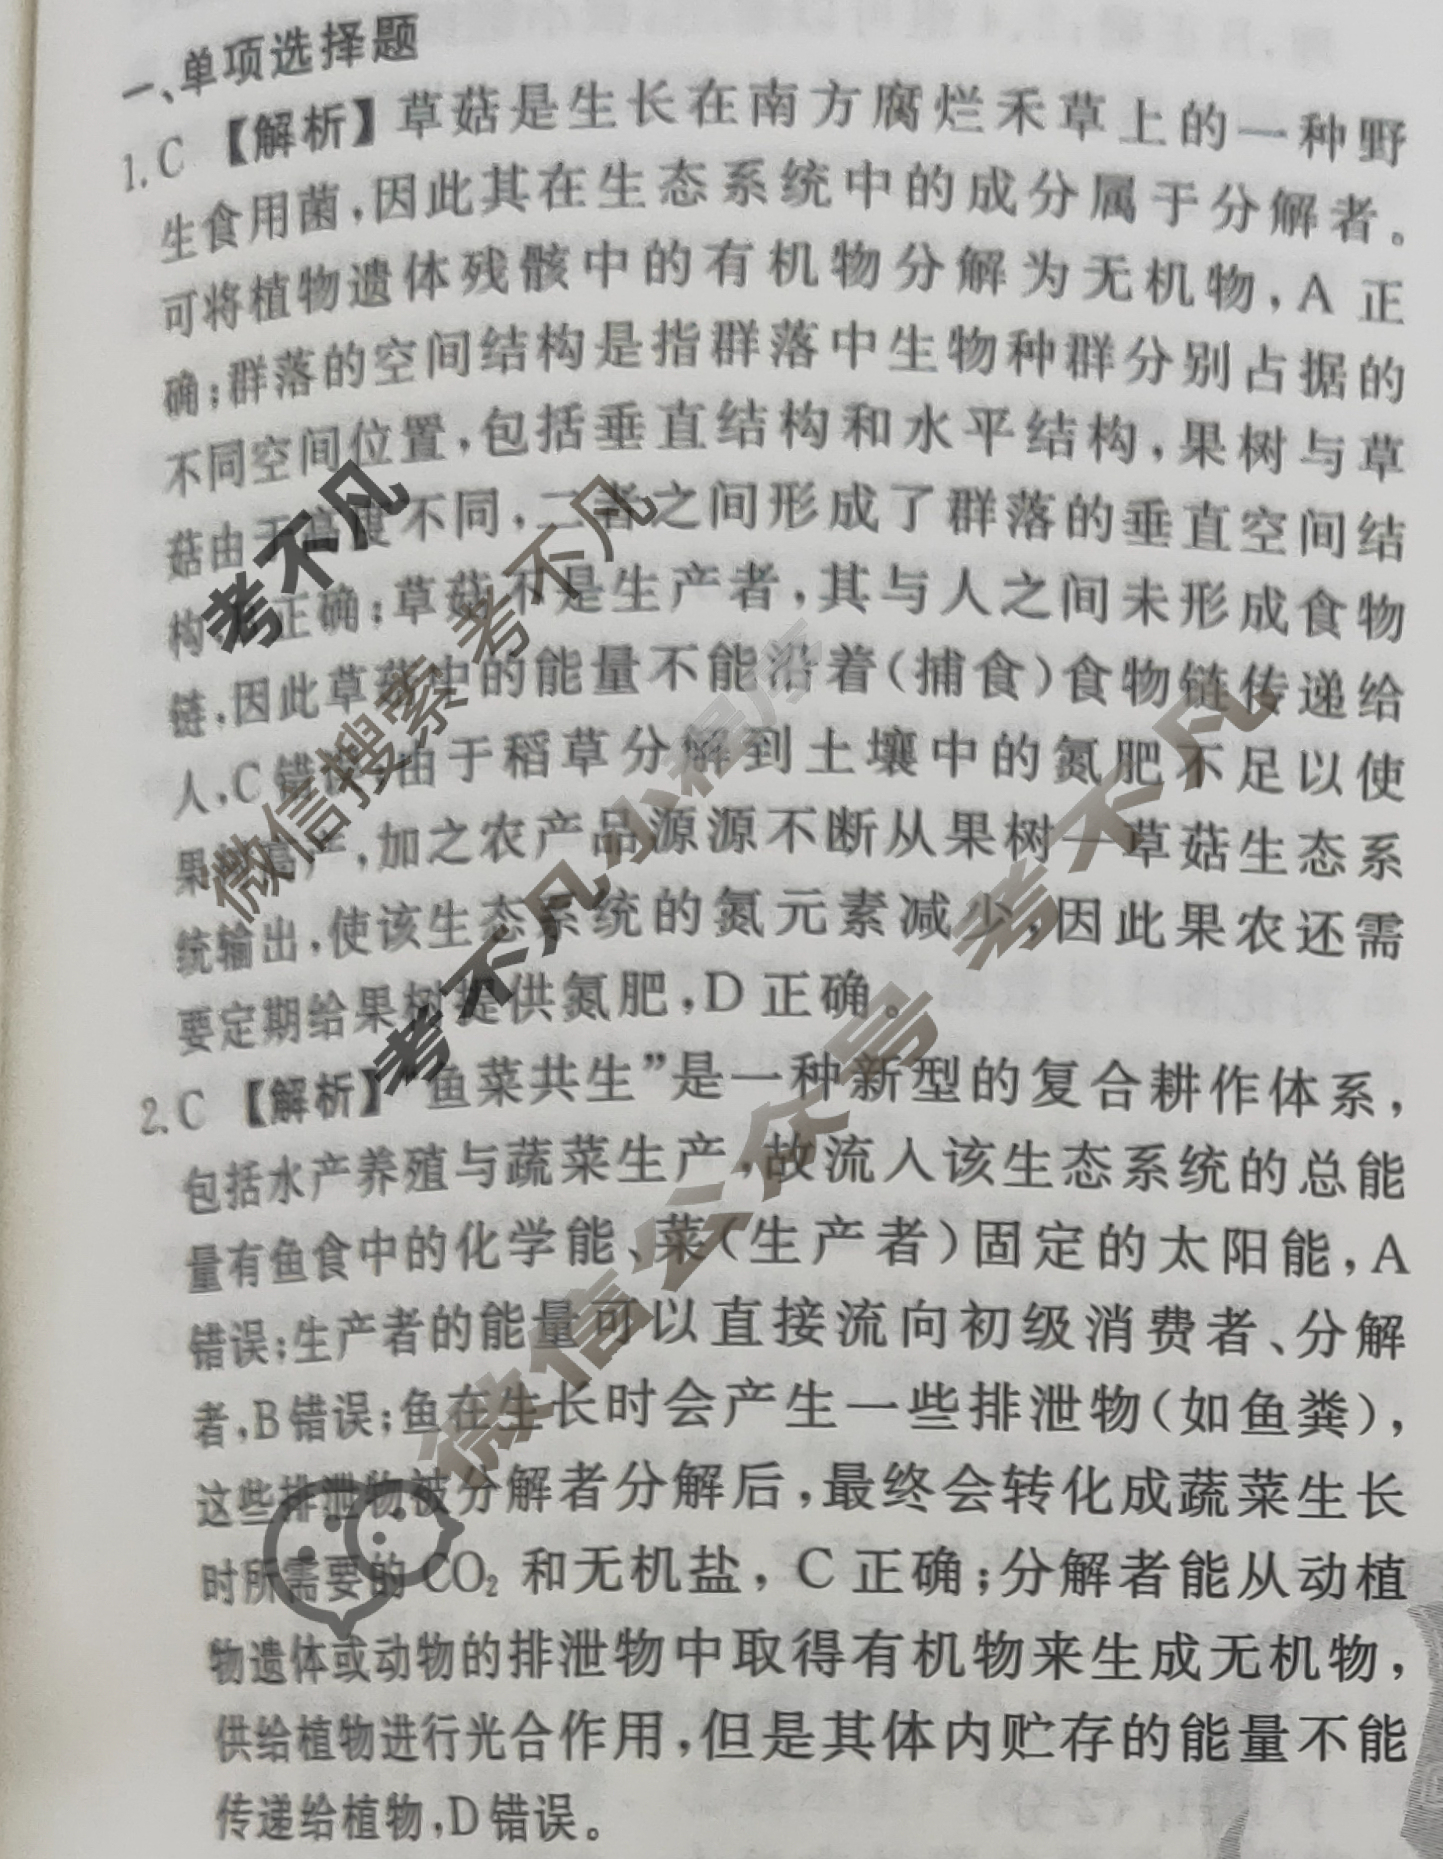 一、单项选择题
1.C 【解析】草菇是生长在南方腐烂禾草上的一种野
生食用菌,因此其在生态系统中的成分属于分解者。
可将植物遗体残骸中的有机物分解为无机物,A 正
确;群落的空间结构是指群落中生物种群分别占据的
不同空间位置,包括垂直结构和水平结构,果树与草
菇由于高度不同,二者之间形成了群落的垂直空间结
构 正确;草菇不是生产者,其与人之间未形成食物
链,因此草菇中的能量不能沿着(捕食)食物链传递给
人,C错误;由于稻草分解到土壤中的氮肥不足以使
果 高产,加之农产品源源不断从果树—草菇生态系
统输出,使该生态系统的氮元素减少,因此果农还需
要定期给果树提供氮肥,D 正确。
2.C 【解析】“鱼菜共生”是一种新型的复合耕作体系,
包括水产养殖与蔬菜生产,故流入该生态系统的总能
量有鱼食中的化学能、菜(生产者)固定的太阳能,A
错误;生产者的能量可以直接流向初级消费者、分解
者,B错误;鱼在生长时会产生一些排泄物(如鱼粪),
这些排泄物被分解者分解后,最终会转化成蔬菜生长
时所需要的CO₂ 和无机盐, C 正确;分解者能从动植
物遗体或动物的排泄物中取得有机物来生成无机物,
供给植物进行光合作用,但是其体内贮存的能量不能
传递给植物,D错误。
考不凡
微信搜索 考不凡
考不凡小程序
微信公众号 考不凡